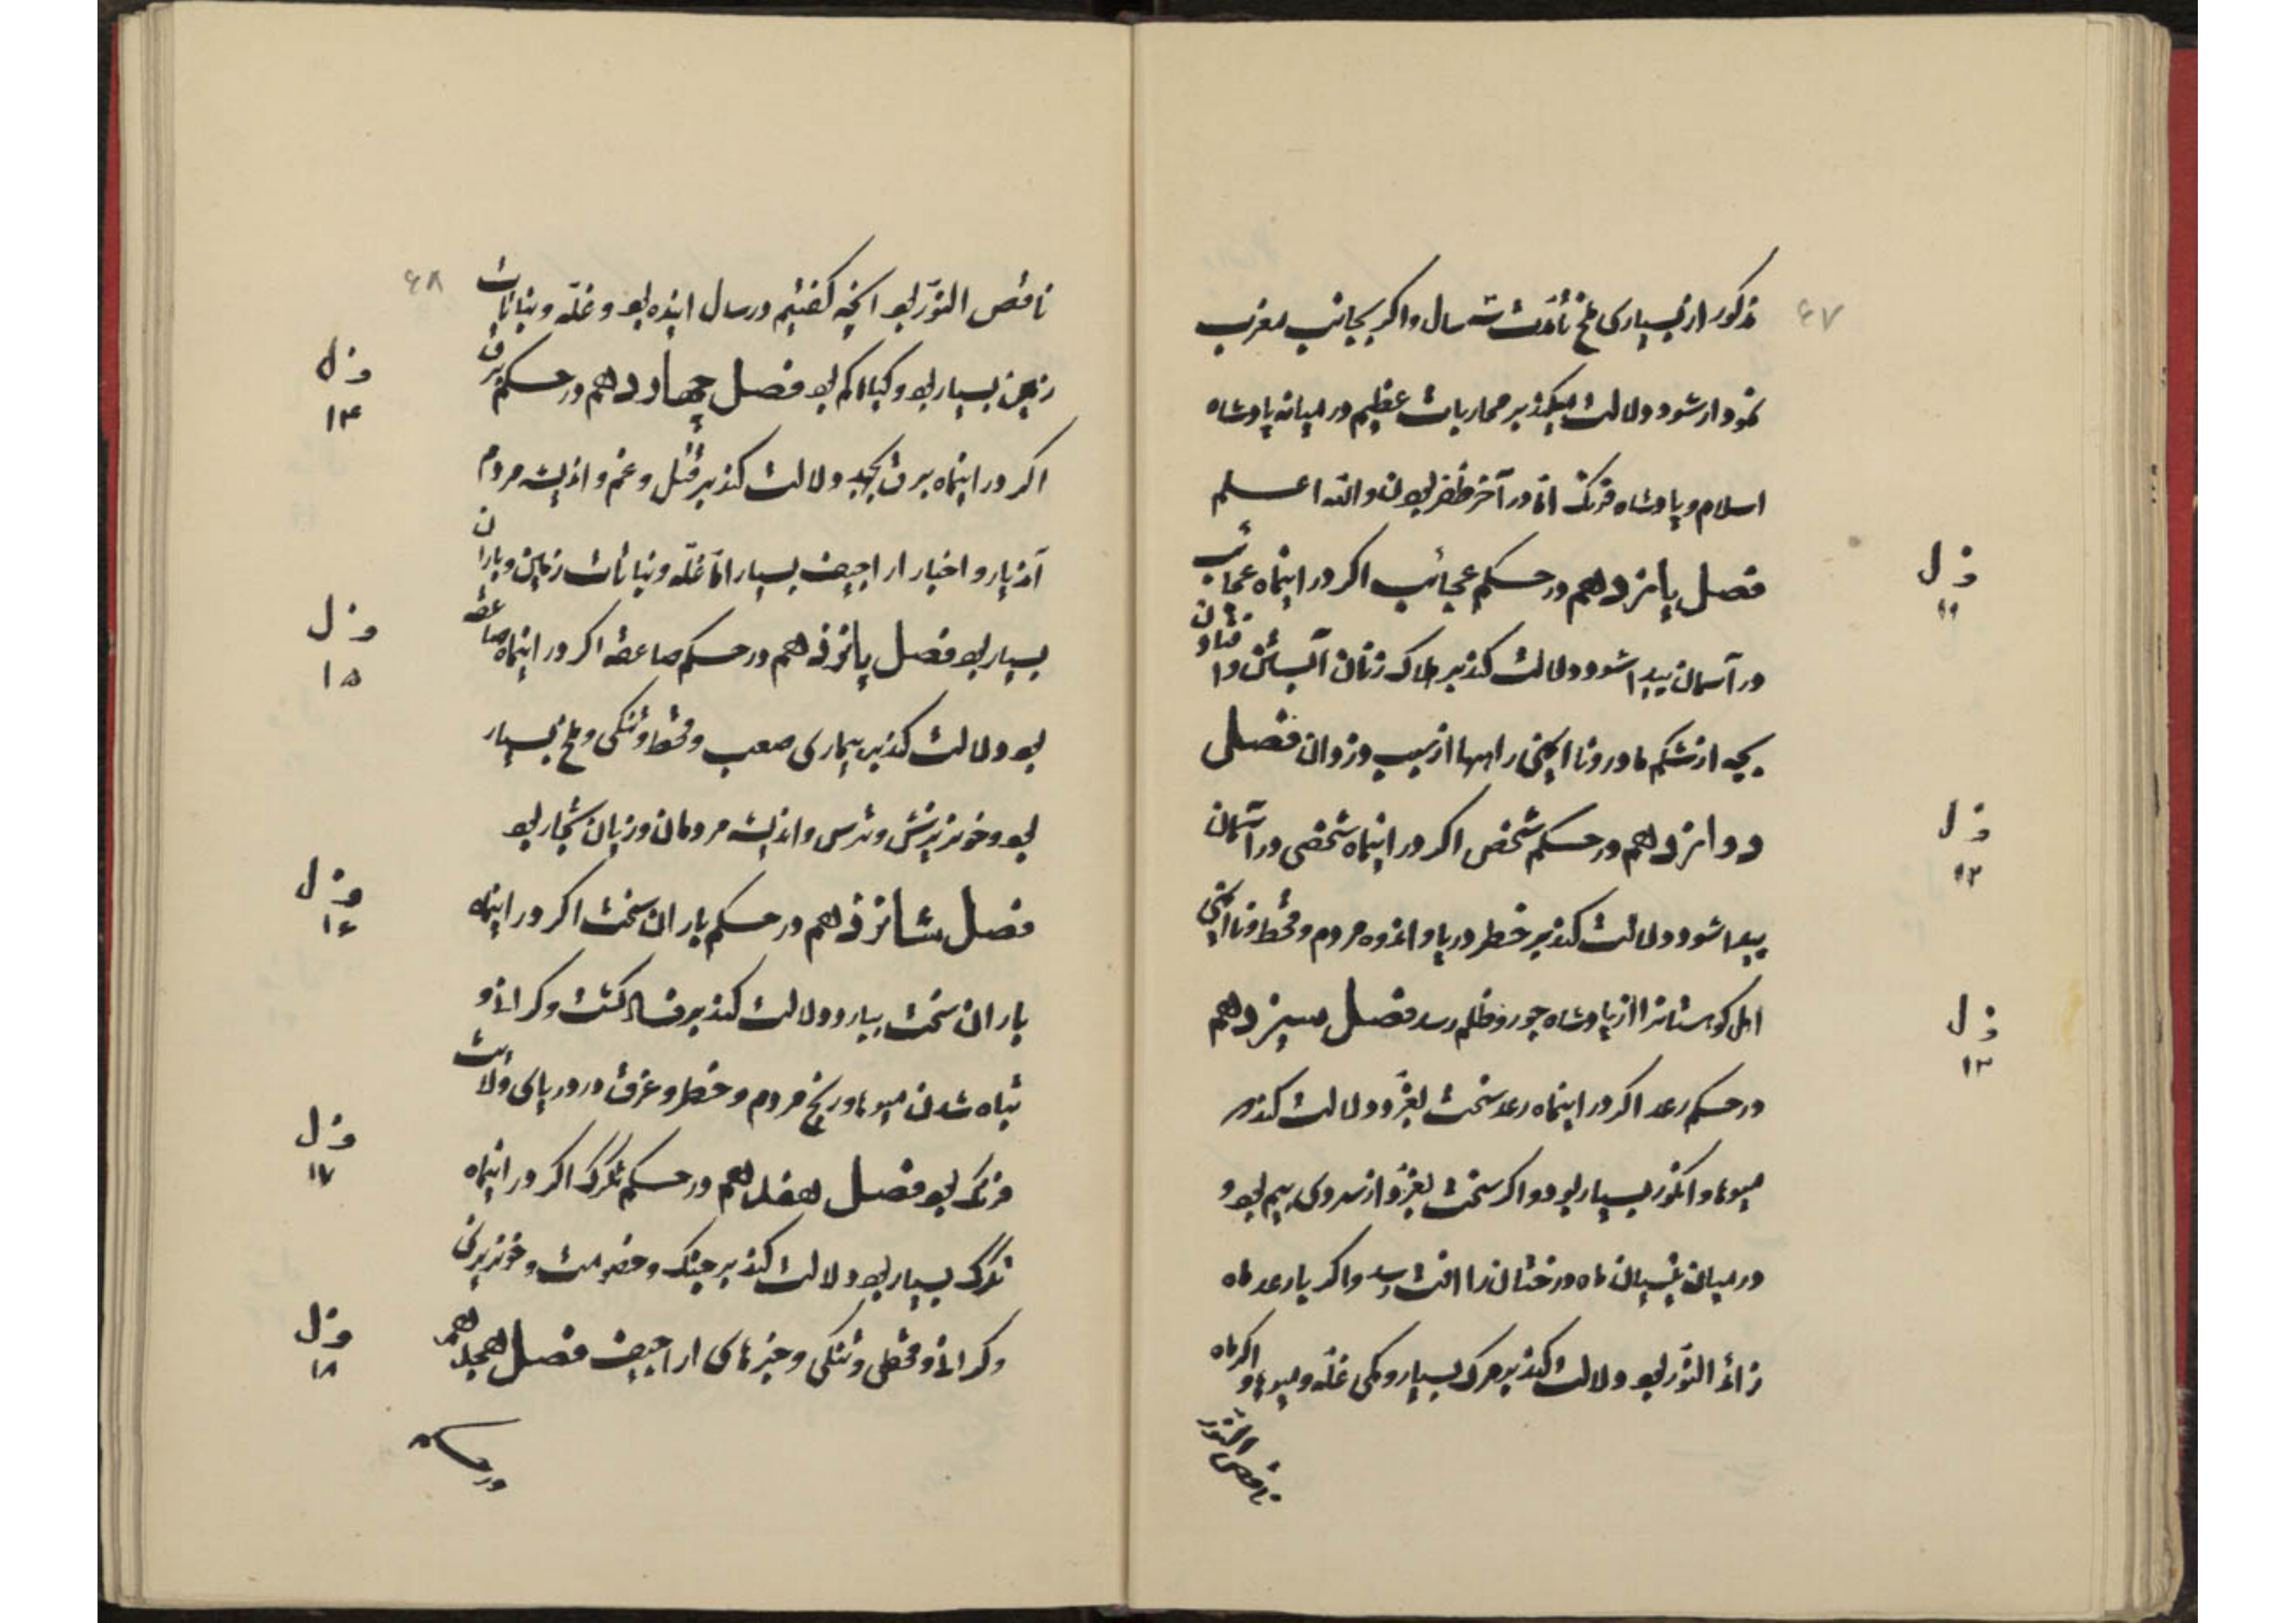 ۶۷
مذکور از بسیاری ملخ تا مدّت سه سال و اکر بجانب مغرب
نمودار شود دلالت میکند بر محاربات عظیم در میانه پادشاه
اسلام و پادشاه فرنک امّا در آخر ظفر بودن والله اعلم
فصل یانزدهم در حکم عجائب اکر در اینماه عجائب
در آسمان پیدا شود دلالت کند بر هلاک زنان آبستن و افتادن
بچه از شکم مادر و ناایمنی راهها از سبب دزدان فصل
دوانزدهم در حکم شخص اکر در اینماه شخصی در آسمان
پیدا شود دلالت کند بر خطر دریا و اندوه مردم و قحط و ناایمنی
اهل کوهستانرا از پادشاه جور و ظلم رسد فصل سیزدهم
در حکم رعد اکر در اینماه رعد سخت بغرّد دلالت کند بر
میوها و انکور بسیار بود و اکر سخت بغرّد از سردی بیم بود و
در میان نیسیان ماه درختان را افت رسد و اکر با رعد ماه
زائد النّور بود دلالت کند بر مرک بسیار و کمی غلّه و میوها و اکر ماه
ناقص النّور
فصل
۱۱
فصل
۱۲
فصل
۱۳
۶۸
ناقص النّور بود انچه کفتیم در سال اینده بود و غلّه و نباتات
زمین بسیار بود و کیاه کم بود فصل چهاردهم در حکم برق
اکر در اینماه برق بجهد دلالت کند بر قتل و غم و اذیت مردم
آذیار و اخبار اراجیف بسیار امّا غلّه و نباتات زمین و باران
بسیار بود فصل پانزدهم در حکم صاعقه اکر در اینماه صاعقه
بود دلالت کند بر بیماری صعب و قحط و تنکی و ملخ بسیار
بود و خونریزش و ترس و اذیت مردمان و زیان تجّار بود
فصل شانزدهم در حکم باران سخت اکر در اینماه
باران سخت ببارد دلالت کند بر فساد کشت و کرانی و
تباه شدن میوها و رنج مردم و خطر و غرق در دریای ولایت
فرنک بود فصل هفدهم در حکم تکرک اکر در اینماه
تکرک بسیار بود دلالت کند بر جنک و خصومت و خونریزی
و کرانی و قحطی و تنکی و خبرهای اراجیف فصل هجدهم
در حکم
فصل
۱۴
فصل
۱۵
فصل
۱۶
فصل
۱۷
فصل
۱۸